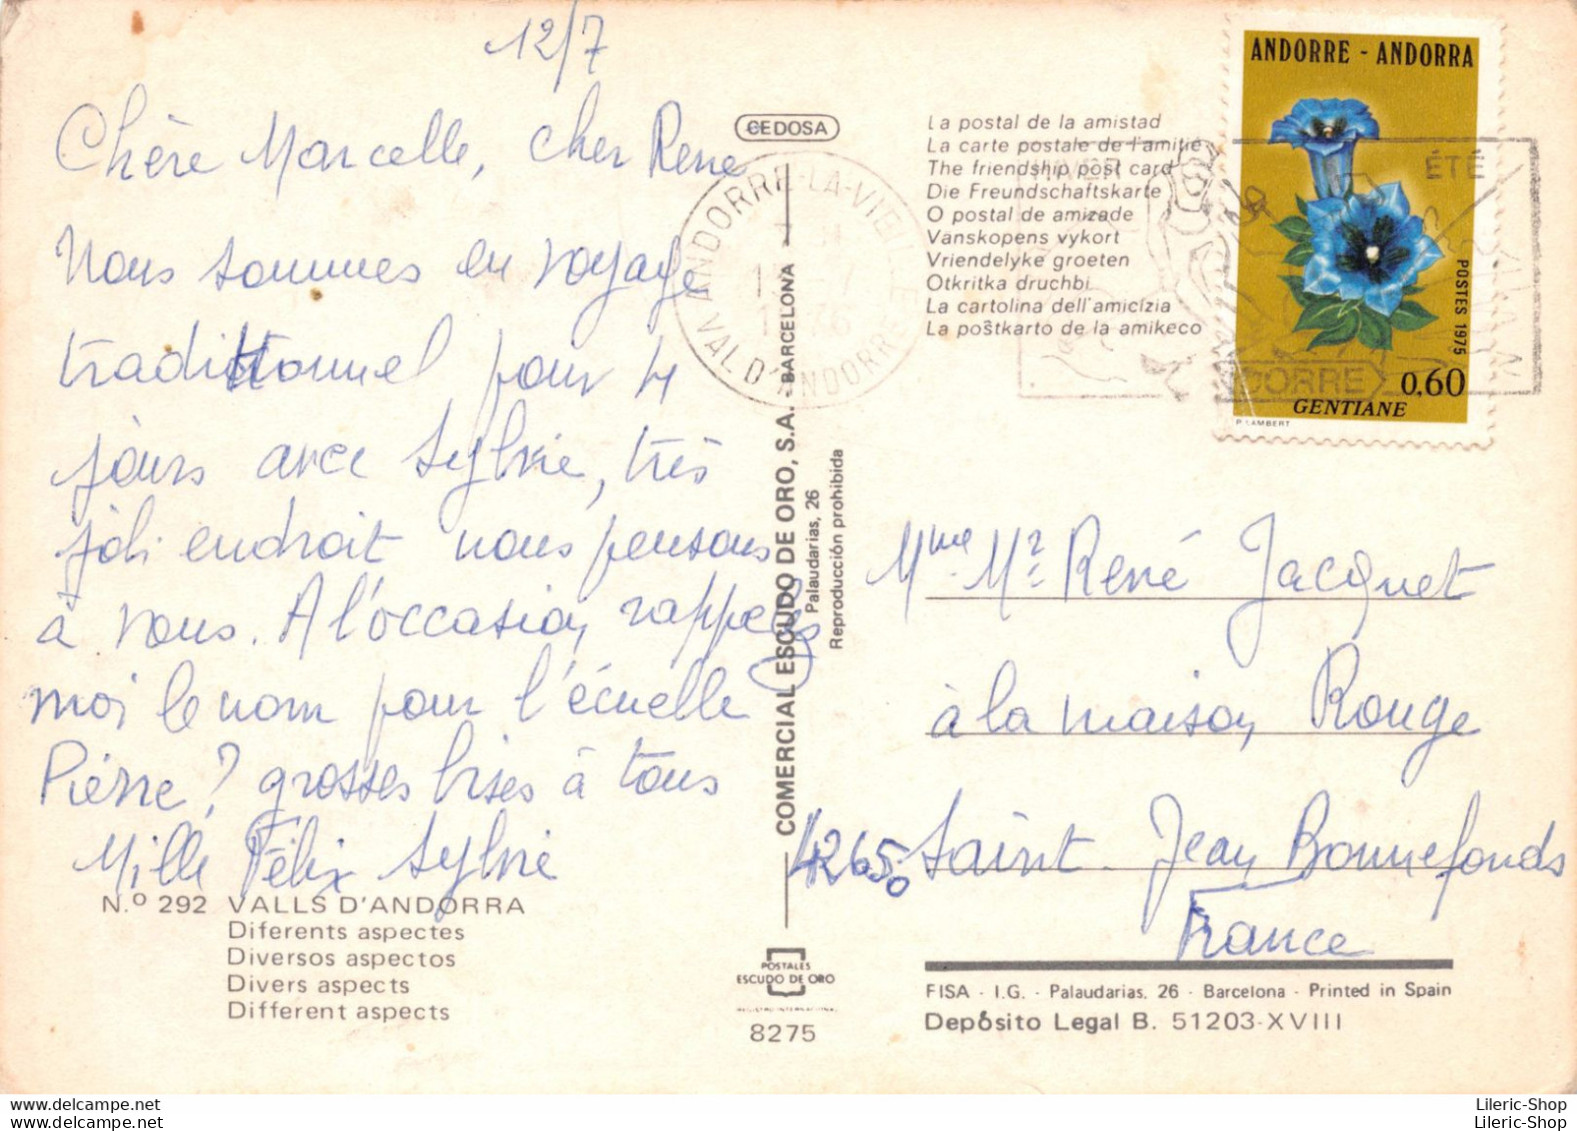 12/7
Chère Marcelle, cher René
Nous sommes en voyage
traditionnel pour 4
jours avec Sylvie, très
joli endroit nous pensons
à vous. A l'occasion rappelez
moi le nom pour l'écuelle
Pierre? grosses bises à tous
Mille Félix Sylvie
N.º 292 VALLS D'ANDORRA
Diferents aspectes
Diversos aspectos
Divers aspects
Different aspects
CEDOSA
COMERCIAL ESCUDO DE ORO, S.A. - BARCELONA -
Palaudarias, 26
Reproducción prohibida
POSTALES
ESCUDO DE ORO
REGISTRO INTERNACIONAL
8275
La postal de la amistad
La carte postale de l'amitié
The friendship post card
Die Freundschaftskarte
O postal de amizade
Vanskopens vykort
Vriendelyke groeten
Otkritka druchbi
La cartolina dell'amicizia
La poŝtkarto de la amikeco
ANDORRE-LA-VIEILLE
VAL D'ANDORRE
HIVER
ÉTÉ
ANDORRE
ANDORRE - ANDORRA
POSTES 1975
0,60
GENTIANE
P. LAMBERT
Mme. Mr. René Jacquet
à la maison Rouge
42650 Saint-Jean Bonnefonds
France
FISA - I.G. - Palaudarias, 26 - Barcelona - Printed in Spain
Depósito Legal B. 51203-XVIII
Lileric-Shop
www.delcampe.net
Lileric-Shop
Lileric-Shop